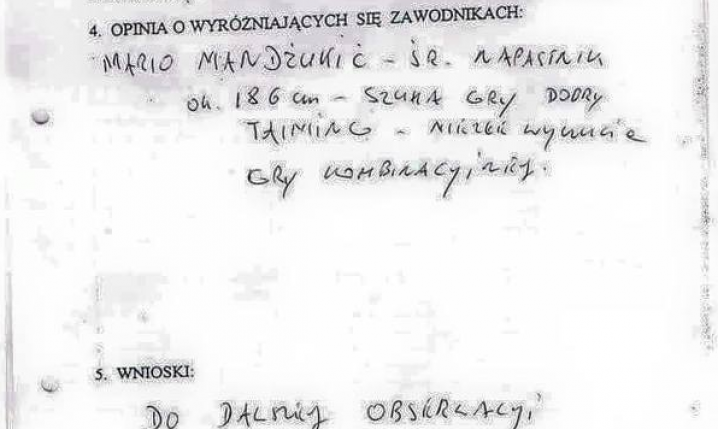 4. OPINIA O WYRÓŻNIAJĄCYCH SIĘ ZAWODNIKACH:
MARIO MANDŻUKIĆ - ŚR. NAPASTNIK
ok. 186 cm - SZUKA GRY DOBRY
TAIMING - NIEZŁE wyczucie
GRY KOMBINACYJNEJ.
5. WNIOSKI:
DO DALSZEJ OBSERWACJI